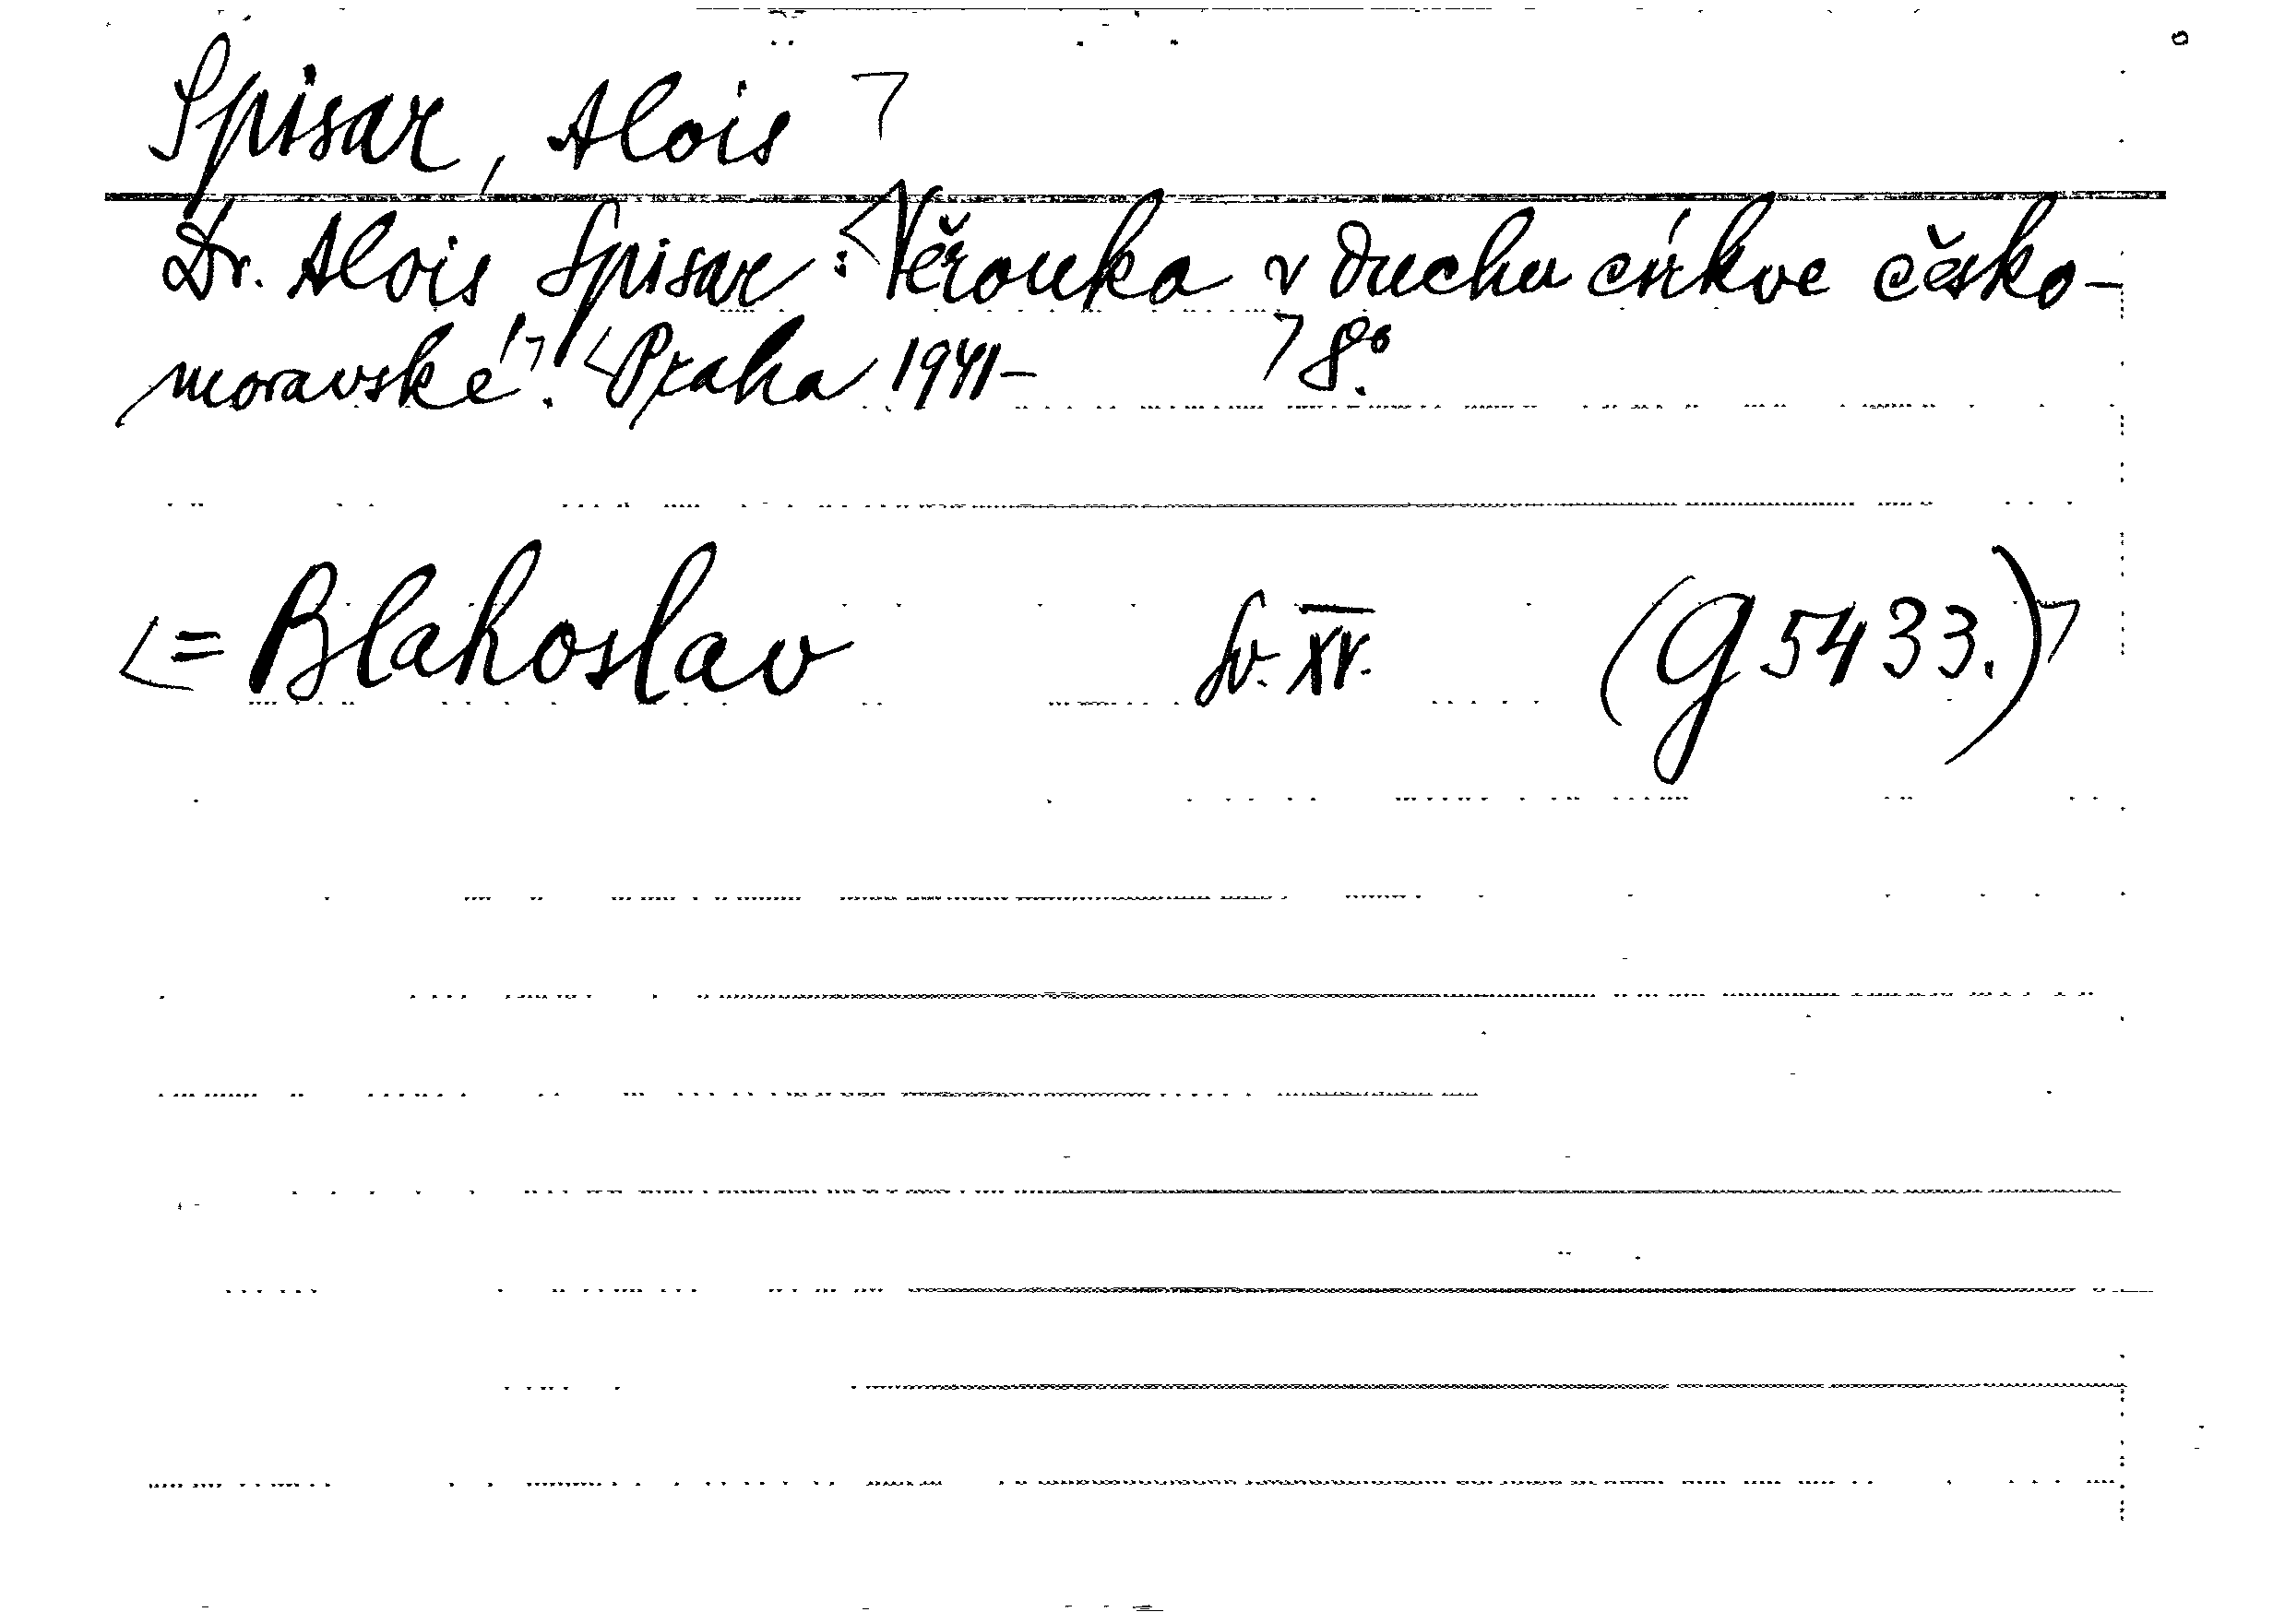 Spisar, Alois
Dr. Alois Spisar: Věrouka v duchu církve česko-
moravské. Praha 1941- 8°.
= Blahoslav sv. XV. (G 5433.)